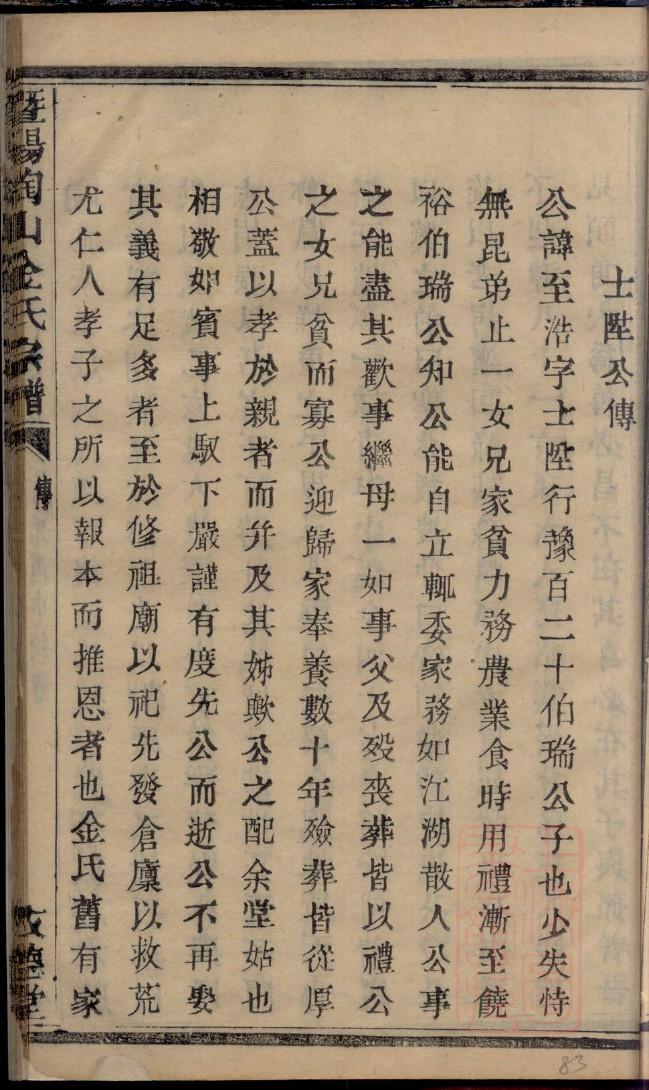 士陞公傳
公諱至浩字士陞行豫百二十伯瑞公子也少失恃
無昆弟止一女兄家貧力務農業食時用禮漸至饒
裕伯瑞公知公能自立輒委家務如江湖散人公事
之能盡其歡事繼母一如事父及殁喪葬皆以禮公
之女兄貧而寡公迎歸家奉養數十年殮葬皆從厚
公蓋以孝於親者而并及其姊歟公之配余堂姑也
相敬如賓事上馭下嚴謹有度先公而逝公不再娶
其義有足多者至於修祖廟以祀先發倉廩以救荒
尤仁人孝子之所以報本而推恩者也金氏舊有家
暨陽陶山金氏宗譜
傳
德堂
83